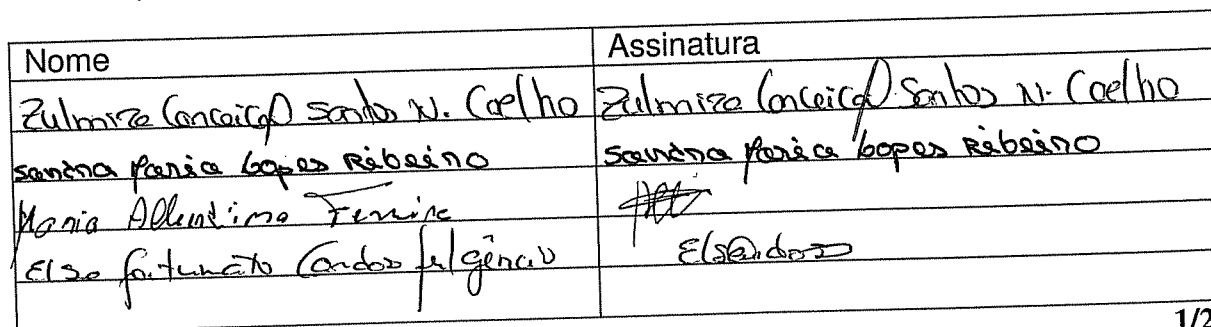 Nome Assinatura
Zulmira Conceição Santos N. Coelho Zulmira Conceição Santos N. Coelho
Sandra Maria Lopes Ribeiro Sandra Maria Lopes Ribeiro
Maria Albertina Ferreira
Elsa Fortunato Candos Fulgêncio
1/2